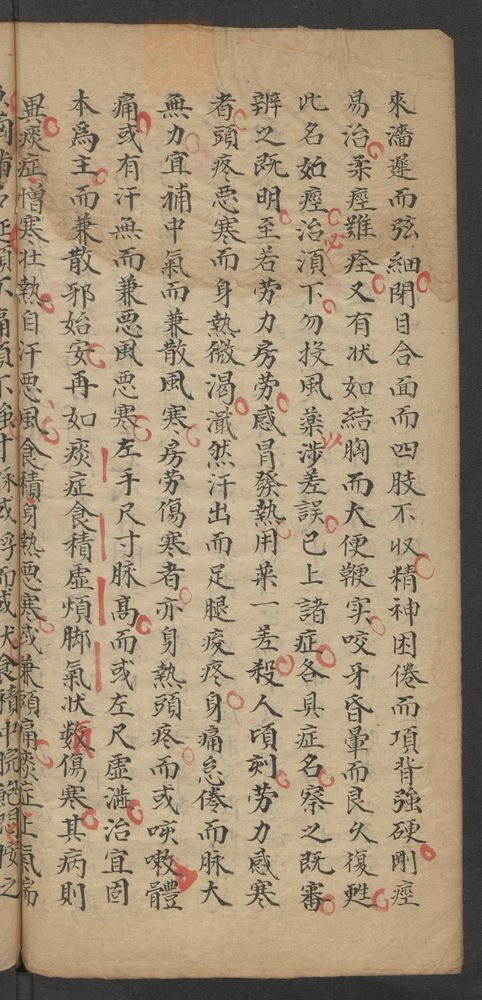 來濇遲而弦細閉目合面而四肢不收精神困倦而項背強硬剛痙
易治柔痙難痊又有状如結胸而大便鞕実咬牙昏暈而良久復甦
此名如痙治湏下勿投風藥渉差誤已上諸症各具症名察之既審
辨之既明至若劳力房劳感冒發熱用薬一差殺人頃刻劳力感寒
者頭疼恶寒而身熱微渴濈然汗出而足腿痠疼身痛怠倦而脉大
無力宜補中氣而兼散風寒房劳傷寒者亦身熱頭疼而或咳嗽體
痛或有汗無而兼恶風恶寒左手尺寸脉高而或左尺虛濇治宜固
本爲主而兼散邪始安再如痰症食積虛煩脚氣状數傷寒其病則
異痰症憎寒壯熱自汗恶風食積身熱恶寒或兼頭痛痰症上氣喘
項不強寸脉或浮而或伏食積中脘